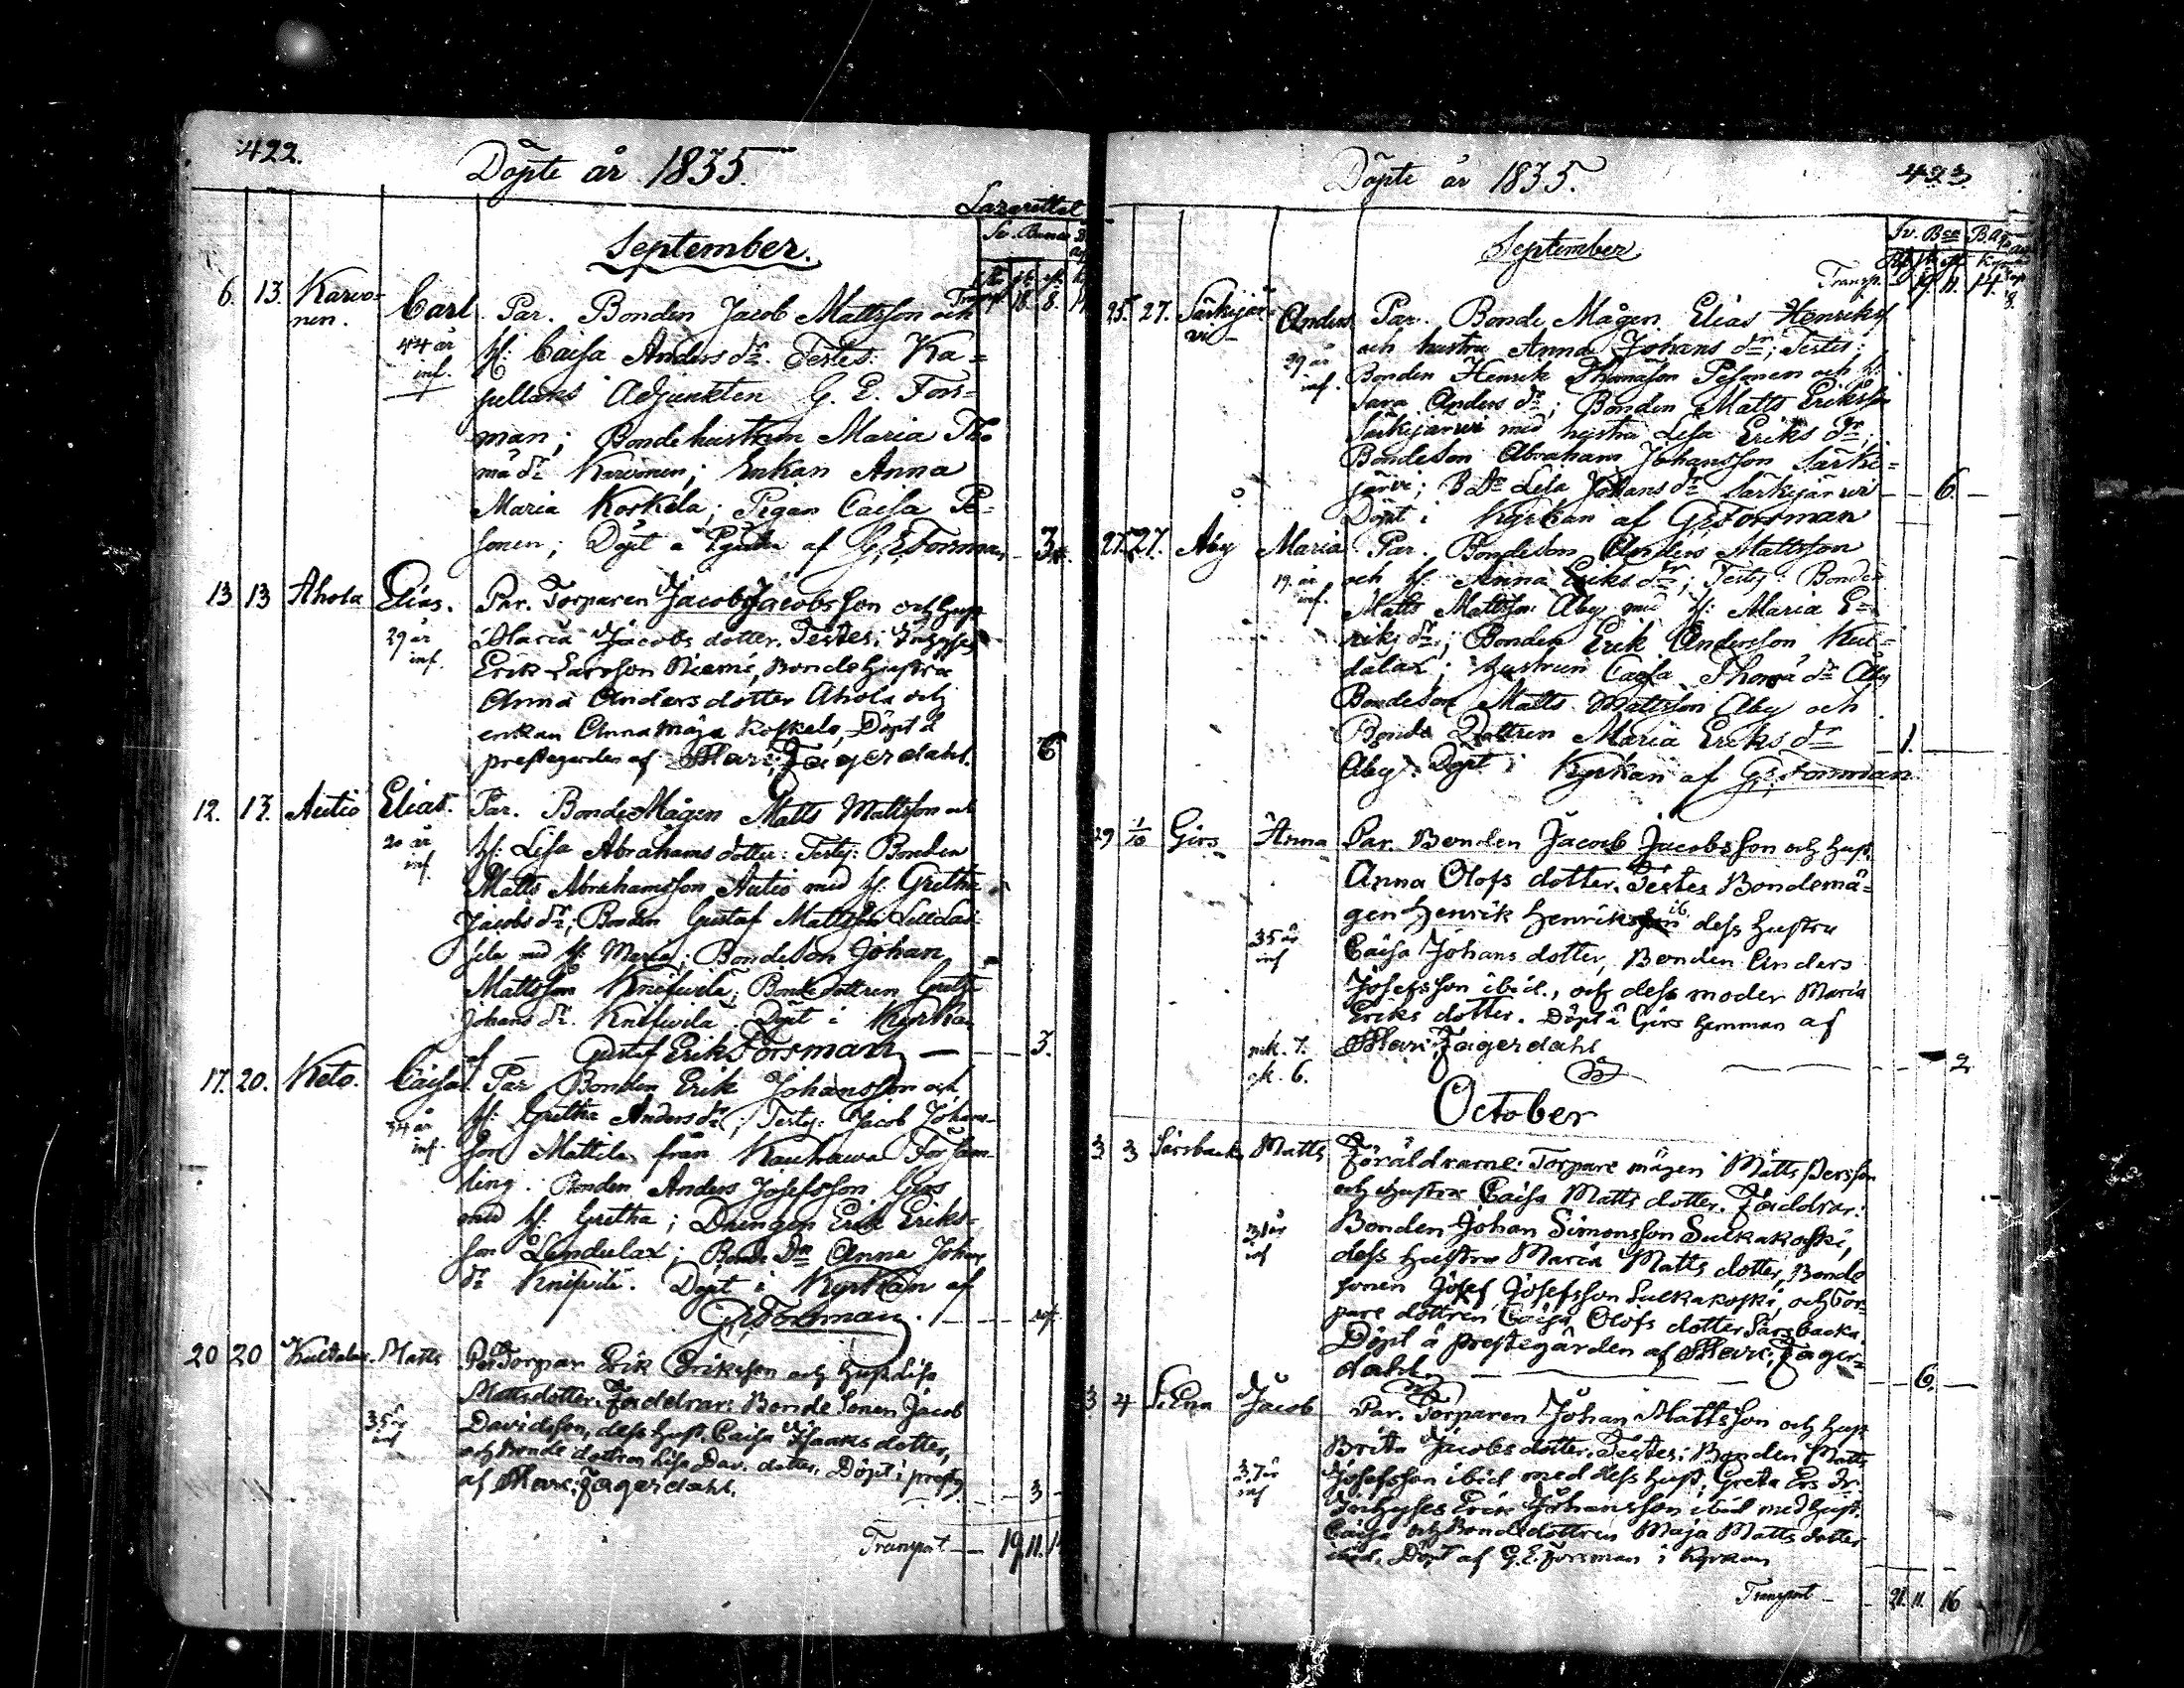 422.
Döpte år 1835.
Lazarettet
September.
6. 13. Karvo-
nen.
Carl. Par. Bonden Jacob Mattsson och
44 år
inf.
H: Caisa Anders dr. Testes: Ka-
pellans Adjunkten G. E. Fors-
man; Bondehustrun Maria Tho-
mä dr Karvonen; Enkan Anna
Maria Koskela; Pigan Caisa Pe-
sonen; Döpt å Pgården af G. E. Forsman 3.
13 13 Ahola Elias. Par. Torparen Jacob Jacobsson och Hust
29 år
inf.
Maria Jacobs dotter. Testes: Inhyses
Erik Larsson Niemi, Bondehustru
Anna Anders dotter Ahola och
enkan Anna Maja Koskela, Döpt å
prestegården af Marc: Fagerdahl. 6
12. 13. Autio Elias. Par. BondeMågen Matts Mattsson och
20 år
inf.
H: Lisa Abrahams dotter: Testes: Bonden
Matts Abrahamsson Autio med H: Gretha
Jacobs dr; Bonden Gustaf Mattsson Lillcas-
sila med H: Maria; Bondeson Johan
Mattsson Knifwilä; Bonde dottren Gretha
Johans dr. Knifwilä. Döpt i Kyrkan
af Gustaf Erik Forsman 3.
17. 20. Keto. Caisa. Par Bonden Erik Johansson och
34 år
inf.
H: Gretha Anders dr; Testes: Jacob Johans-
son Mattila från Kauhawa Försam-
ling. Bonden Anders Josefsson Girs
med H: Gretha; Drängen Erik Eriks-
son Lindulax; Bonde Dr Anna Johans
dr Knifvilä. Döpt i Kyrkan af
G. E. Forsman.
20 20 Kuddalax. Matts Par Torpar. Erik Eriksson och Hust. Lisa
Mattsdotter. Faddrar: Bonde Sonen Jacob
35 år
inf
Davidsson, dess Hust. Caisa Isaaks dotter,
och Bonde dottren Lisa Dav. dotter. Döpt i prestg
af Marc: Fagerdahl. 3
Transport 19. 11. 14
423.
Döpte år 1835.
September
Transp. 19. 11. 14. 8.
25. 27. Särkijär-
vi
Anders Par. Bonde Mågen Elias Henriks
och hustru Anna Johans dr; Testes:
29 år
inf.
Bonden Henrik Thomasson Pesonen och H:
Sara Anders dr; Bonden Matts Eriksson
Särkijärvi med hustru Lisa Eriks dr;
Bondeson Abraham Johansson Särki-
järvi; B Dr Lisa Johans dr Särkijärvi 6.
Döpt i Kyrkan af G. E. Forsman
27. 27. Åby Maria Par. Bondeson Anders Mattsson
19. år
inf.
och H: Anna Eriks dr; Testes: Bonden
Matts Mattsson Åby med H: Maria E-
riks dr; Bonden Erik Andersson Kud-
dalax; hustrun Caisa Thomä dr Åby
Bondeson Matts Mattsson Åby och
Bonde Dottren Maria Eriks dr 1.
Åby. Döpt i Kyrkan af G. E. Forsman
29 1/10 Girs Anna Par. Bonden Jacob Jacobsson och Hust.
Anna Olofs dotter. Testes Bondemå-
gen Henrik Henriksson ib. dess Hustru
35 år
inf
Caisa Johans dotter, Bonden Anders
Josefsson ibid., och dess moder Maria
Eriks dotter. Döpt å Girs Hemman af
mk. 7. Marc: Fagerdahl
qk. 6. 2
October
3 3 Särsbacka Matts Föräldrarne: Torpare mågen Matts Persson
och Hustru Caisa Matts dotter. Faddrar:
31 år
inf
Bonden Johan Simonsson Sulkakoski,
dess Hustru Maria Matts dotter, Bonde
sonen Josef Josefsson Sulkakoski, och Tor-
pare dottren Caisa Olofs dotter Särsbacka.
Döpt å prestegården af Marc: Fager-
dahl 6.
3 4 Jacob Par. Torparen Johan Mattsson och Hust
Brita Jacobs dotter. Testes: Bonden Matts
37 år
inf
Josefsson ibid med dess Hust. Greta Ers Dr.
Inhyses Erik Johansson ibid med Hust.
Caisa och Bondedottren Maja Matts dotter
ibid. Döpt af G. E. Forsman i Kyrkan
Transport 21. 11. 16